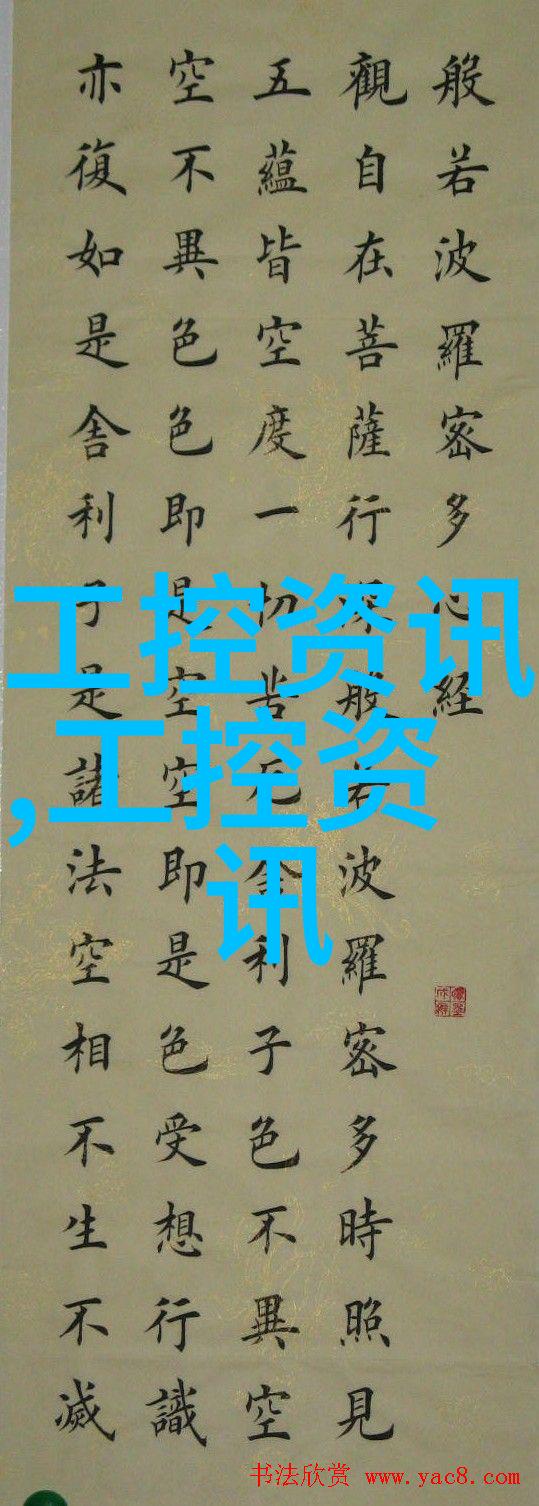 般若波羅密多心経
觀自在菩薩行深般若波羅密多時照見
五蘊皆空度一切苦厄舍利子色不異空
空不異色色即是空空即是色受想行識
亦復如是舍利子是諸法空相不生不滅
工控资讯
,工控资
讯
书法欣赏 www.yac8.com